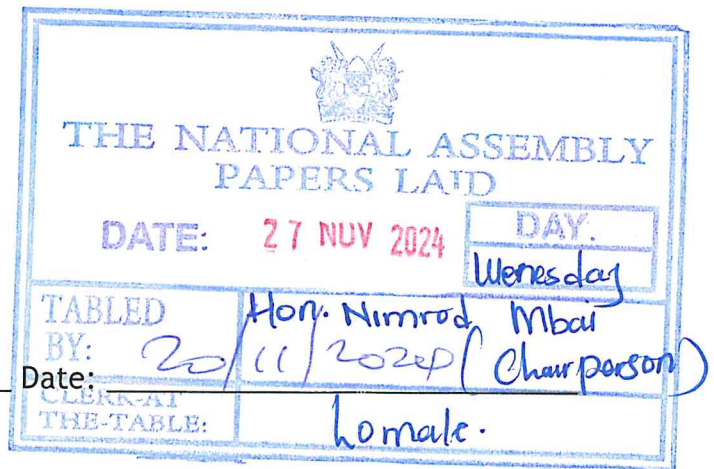 THE NATIONAL ASSEMBLY
PAPERS LAID
DATE: 27 NOV 2024
DAY.
Wenesday
TABLED BY:
Hon. Nimrod Mbai
(Chairperson)
Date: 20/11/2024
CLERK-AT THE-TABLE:
Lomale.